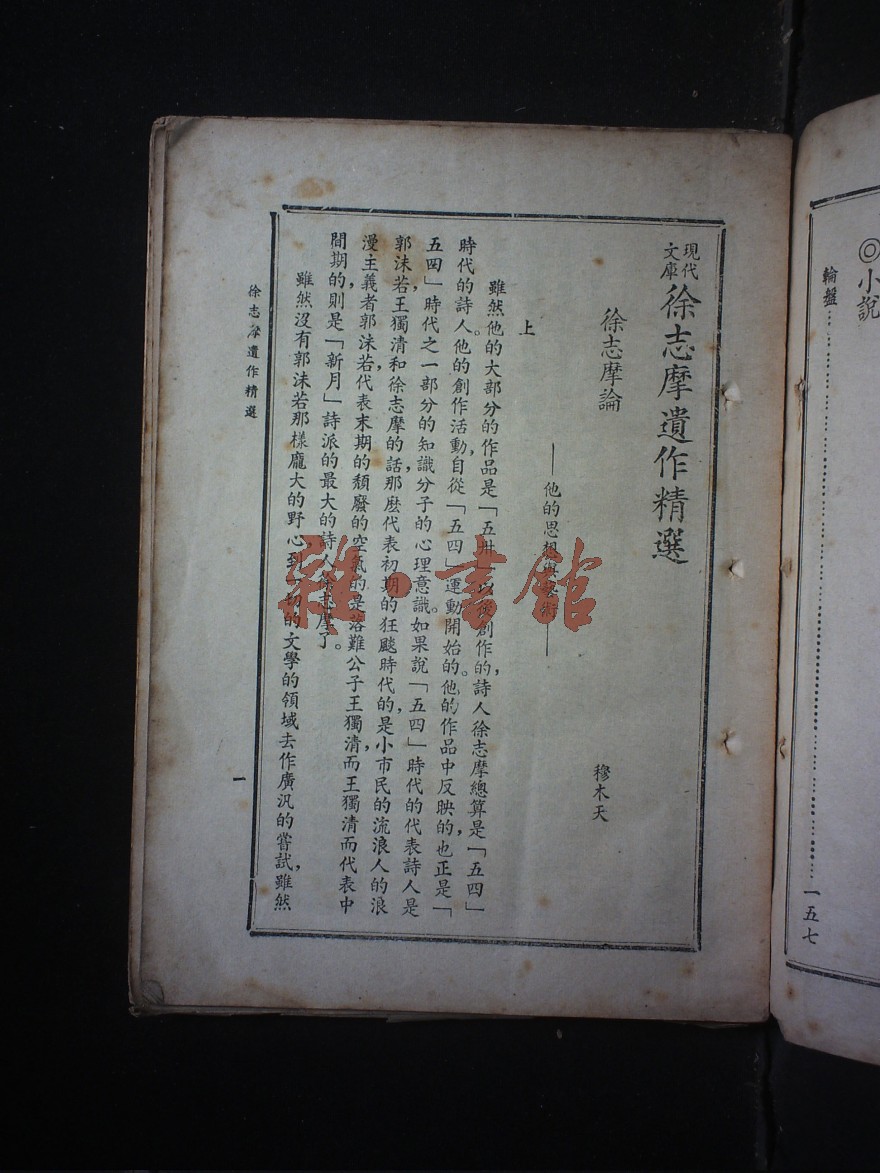 ◎小說
輪盤…………………………一五七
現代文庫 徐志摩遺作精選
徐志摩論
——他的思想與藝術——
穆木天
上
雖然他的大部分的作品是「五卅」以後創作的，詩人徐志摩總算是「五四」
時代的詩人。他的創作活動，自從「五四」運動開始的。他的作品中反映的，也正是「
五四」時代之一部分的知識分子的心理意識。如果說「五四」時代的代表詩人是
郭沫若王獨清和徐志摩的話，那麼代表初期的狂飈時代的，是小市民的流浪人的浪
漫主義者郭沫若，代表末期的頹廢的空氣的是落難公子王獨清，而王獨清而代表中
間期的，則是「新月」詩派的最大的詩人徐志摩了。
雖然沒有郭沫若那樣龐大的野心，到一切的文學的領域去作廣汎的嘗試，雖然
徐志摩遺作精選
一
雜·書館